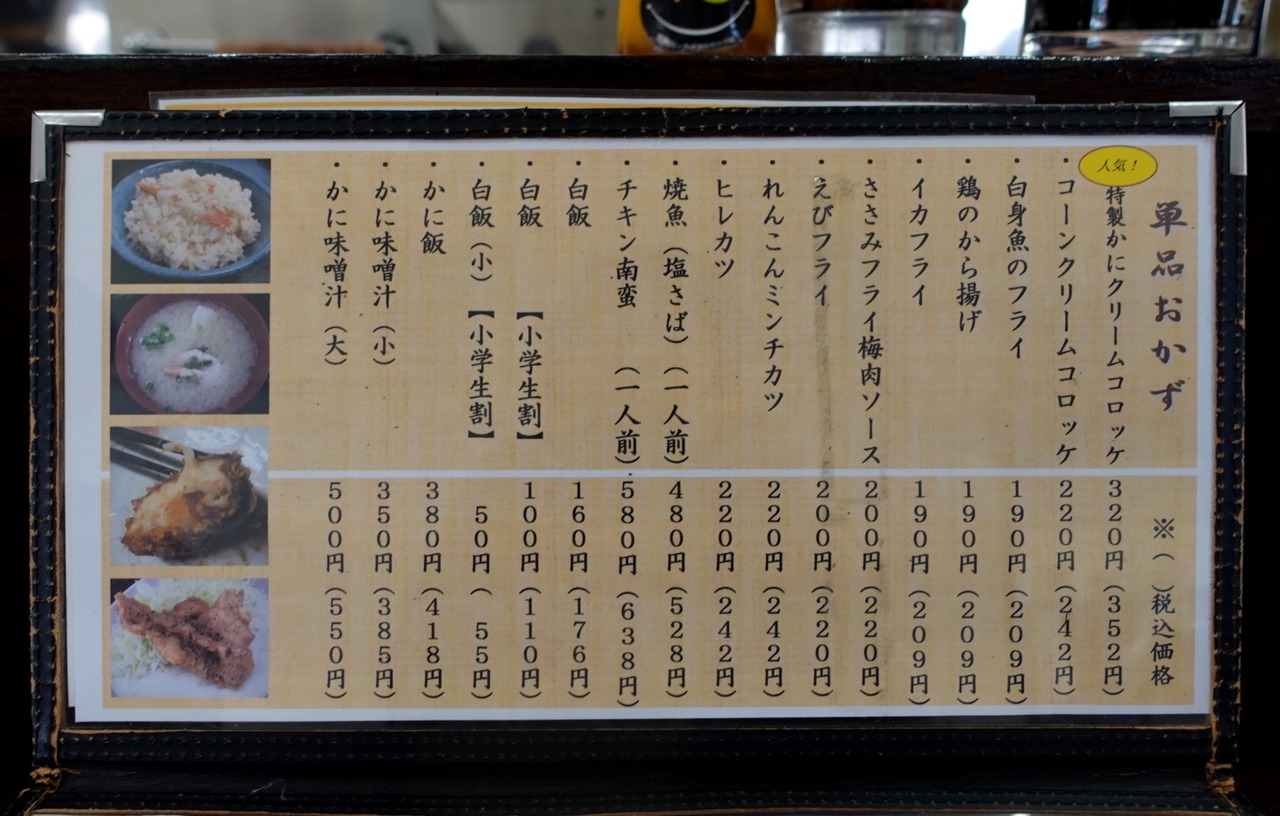 単品おかず ※( )税込価格
人気！
特製かにクリームコロッケ 320円(352円)
・コーンクリームコロッケ 220円(242円)
・白身魚のフライ 190円(209円)
・鶏のから揚げ 190円(209円)
・イカフライ 190円(209円)
・ささみフライ梅肉ソース 200円(220円)
・えびフライ 200円(220円)
・れんこんミンチカツ 220円(242円)
・ヒレカツ 220円(242円)
・焼魚(塩さば)(一人前) 480円(528円)
・チキン南蛮 (一人前) 580円(638円)
・白飯 160円(176円)
・白飯 【小学生割】 100円(110円)
・白飯(小)【小学生割】 50円( 55円)
・かに飯 380円(418円)
・かに味噌汁(小) 350円(385円)
・かに味噌汁(大) 500円(550円)